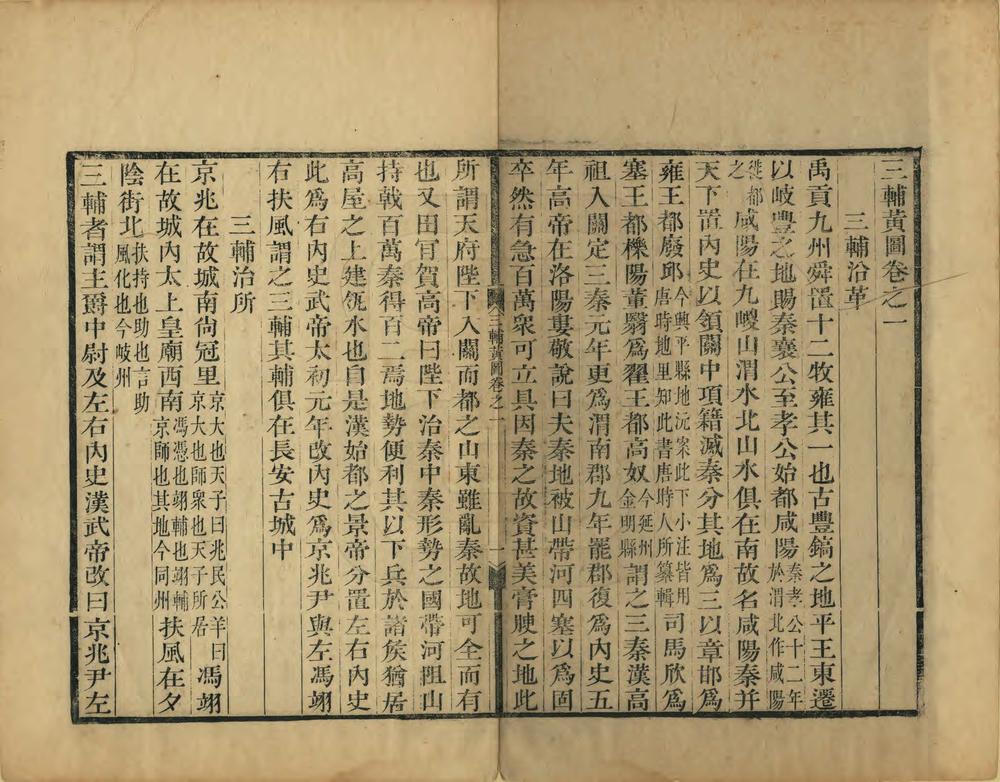 三輔黃圖卷之一
三輔沿革
禹貢九州舜置十二牧雍其一也古豐鎬之地平王東遷
以岐豐之地賜秦襄公至孝公始都咸陽秦孝公十二年於渭北作咸陽
徙都之咸陽在九嵕山渭水北山水俱在南故名咸陽秦并
天下置內史以領關中項籍滅秦分其地爲三以章邯爲
雍王都廢邱今興平縣地沅案此下小注皆用唐時地里知此書唐時人所纂輯司馬欣爲
塞王都櫟陽董翳爲翟王都高奴今延州金明縣謂之三秦漢高
祖入關定三秦元年更爲渭南郡九年罷郡復爲內史五
年高帝在洛陽婁敬說曰夫秦地被山帶河四塞以爲固
卒然有急百萬衆可立具因秦之故資甚美膏腴之地此
三輔黃圖卷之一
一
所謂天府陛下入關而都之山東雖亂秦故地可全而有
也又田肎賀高帝曰陛下治秦中秦形勢之國帶河阻山
持戟百萬秦得百二焉地勢便利其以下兵於諸侯猶居
高屋之上建瓴水也自是漢始都之景帝分置左右內史
此爲右內史武帝太初元年改內史爲京兆尹與左馮翊
右扶風謂之三輔其輔俱在長安古城中
三輔治所
京兆在故城南尙冠里京大也天子曰兆民公羊曰京大也師衆也天子所居馮翊
在故城內太上皇廟西南馮憑也翊輔也翊輔京師也其地今同州扶風在夕
陰街北扶持也助也言助風化也今岐州
三輔者謂主爵中尉及左右內史漢武帝改曰京兆尹左